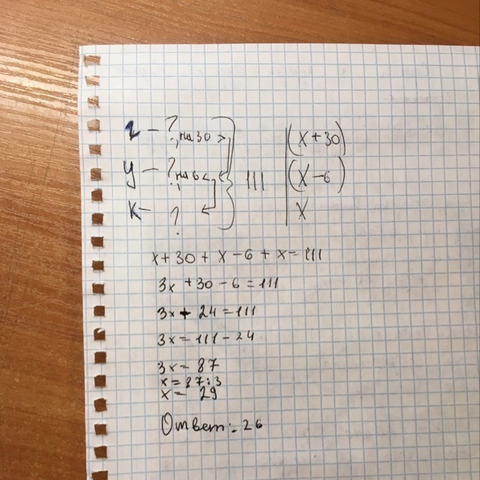 2 - ?, на 30 > } (x+30)
у - ?, на 6 <, } 111 (x-6)
к - ? } x
x+30+x-6+x=111
3x+30-6=111
3x+24=111
3x=111-24
3x=87
x=87:3
x=29
Ответ:-26